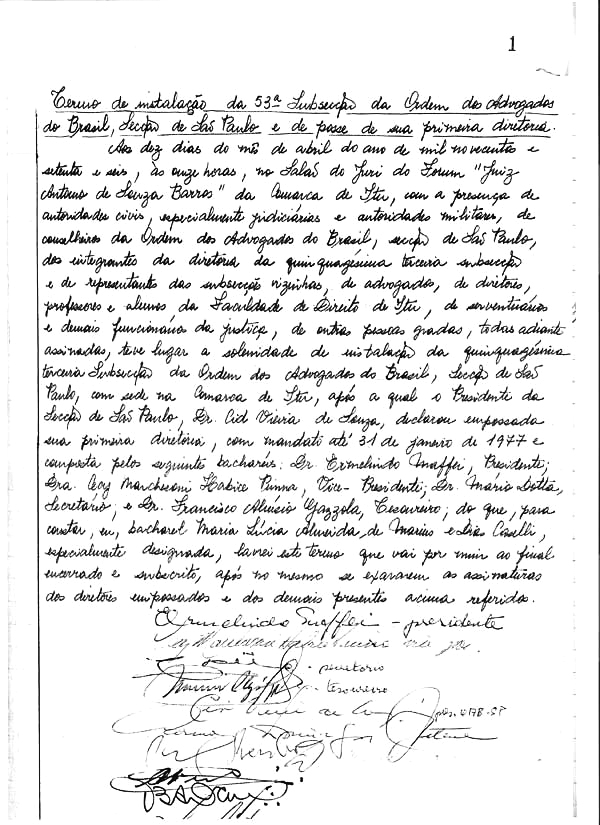 1
Termo de instalação da 53ª Subsecção da Ordem dos Advogados
do Brasil, Secção de São Paulo e de posse de sua primeira diretoria.
Aos dez dias do mês de abril do ano de mil novecentos e
setenta e seis, às onze horas, no Salão do Juri do Forum "Juiz
Antonio de Souza Barros" da Comarca de Itu, com a presença de
autoridades civis, especialmente judiciárias e autoridades militares, de
conselheiros da Ordem dos Advogados do Brasil, secção de São Paulo,
dos integrantes da diretoria da quinquagésima terceira subsecção
e de representantes das subsecção vizinhas, de advogados, de diretores,
professores e alunos da Faculdade de Direito de Itu, de serventuários
e demais funcionários da justiça, de outras pessoas gradas, todas adiante
assinadas, teve lugar a solenidade de instalação da quinquagésima
terceira Subsecção da Ordem dos Advogados do Brasil, Secção de São
Paulo, com sede na Comarca de Itu, após a qual o Presidente da
Secção de São Paulo, Dr. Cid Vieira de Souza, declarou empossada
sua primeira diretoria, com mandato até 31 de janeiro de 1977 e
composta pelos seguintes bacharéis: Dr. Ermelindo Maffei, Presidente;
Dra. Marchesoni Habice Vice-Presidente; Dr. Mário Dotta,
Secretário; e Dr. Francisco Aluísio Gazzola, Tesoureiro; do que, para
constar, eu, bacharel Maria Lúcia Almeida de Marins e Dias Caselli,
especialmente designada, lavrei este termo que vai por mim ao final
encerrado e subscrito, após no mesmo se exararem as assinaturas
dos diretores empossados e dos demais presentes acima referidos.
Ermelindo Maffei - presidente
- secretario
- tesoureiro
pres. OAB-SP